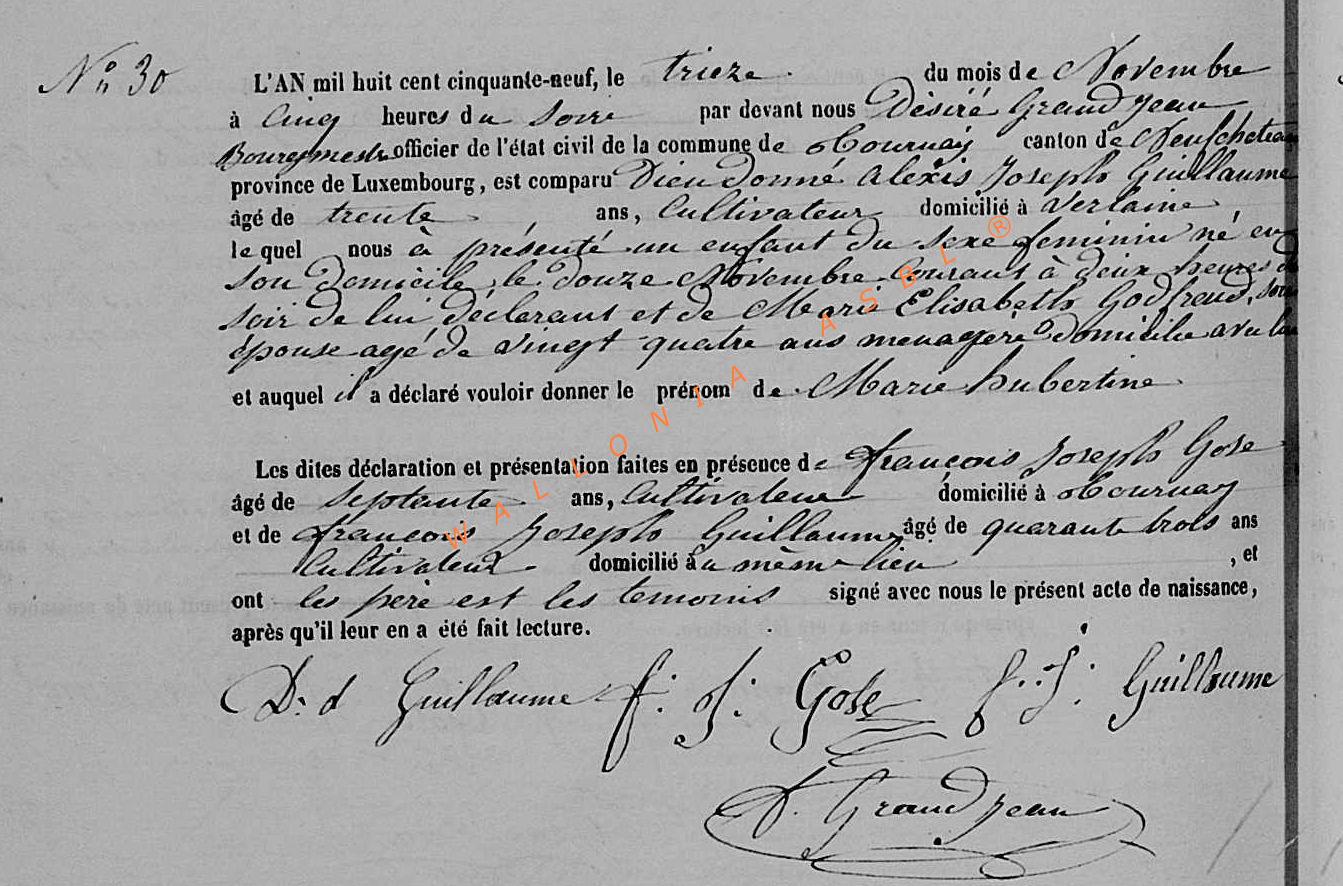 N° 30
L'AN mil huit cent cinquante-neuf, le trieze du mois de Novembre
à Cinq heures du Soire par devant nous Désiré Grandjean
Bourgmestre officier de l'état civil de la commune de Tournay canton de Neufchateau
province de Luxembourg, est comparu Dieudonné Alexis Joseph Guillaume
âgé de trente ans, Cultivateur domicilié à Verlaine,
le quel nous à présenté un enfant du sexe feminin né en
son domicile, le douze Novembre Courant à deux heures du
soir de lui déclarant et de Marie Elisabeth Godfraud, son
épouse agé de vingt quatre ans menagere domicilié avec lui
et auquel il a déclaré vouloir donner le prénom de Marie hubertine
Les dites déclaration et présentation faites en présence de françois Joseph Gose
âgé de Septante ans, Cultivateur domicilié à Tournay
et de françois Joseph Guillaume âgé de quarante trois ans
Cultivateur domicilié au même lieu, et
ont les père est les temoins signé avec nous le présent acte de naissance,
après qu'il leur en a été fait lecture.
D. d Guillaume f. J. Gose f. J. Guillaume
D. Grandjean
WALLONIA ASBL ®